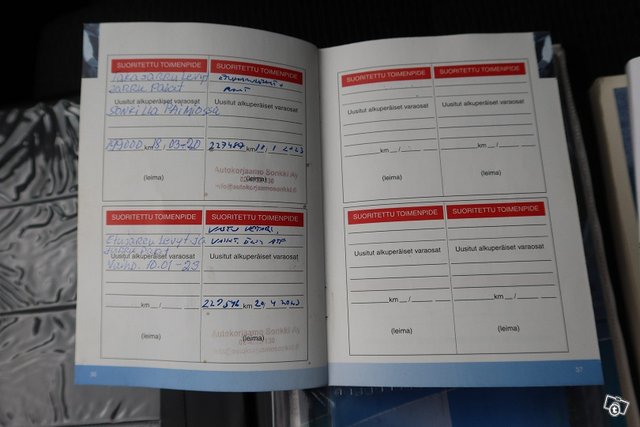 SUORITETTU TOIMENPIDE
Takajarru levyt
Jarru Palat
Uusitut alkuperäiset varaosat
SONKILLA PAIMIOSSA
km 18, 03-20
(leima)
SUORITETTU TOIMENPIDE
Uusitut alkuperäiset varaosat
km
Autokorjaamo Sonkki Ay
(leima)
info@autokorjaamosonkki.fi
SUORITETTU TOIMENPIDE
Etujarru Levyt ja
Jarru Palat
Uusitut alkuperäiset varaosat
Vaihd. 10.01-23
km /
(leima)
SUORITETTU TOIMENPIDE
Uusitut alkuperäiset varaosat
km 20 4 2023
Autokorjaamo Sonkki Ay
(leima)
info@autokorjaamosonkki.fi
36
SUORITETTU TOIMENPIDE
Uusitut alkuperäiset varaosat
km /
(leima)
SUORITETTU TOIMENPIDE
Uusitut alkuperäiset varaosat
km /
(leima)
SUORITETTU TOIMENPIDE
Uusitut alkuperäiset varaosat
km /
(leima)
SUORITETTU TOIMENPIDE
Uusitut alkuperäiset varaosat
km /
(leima)
37